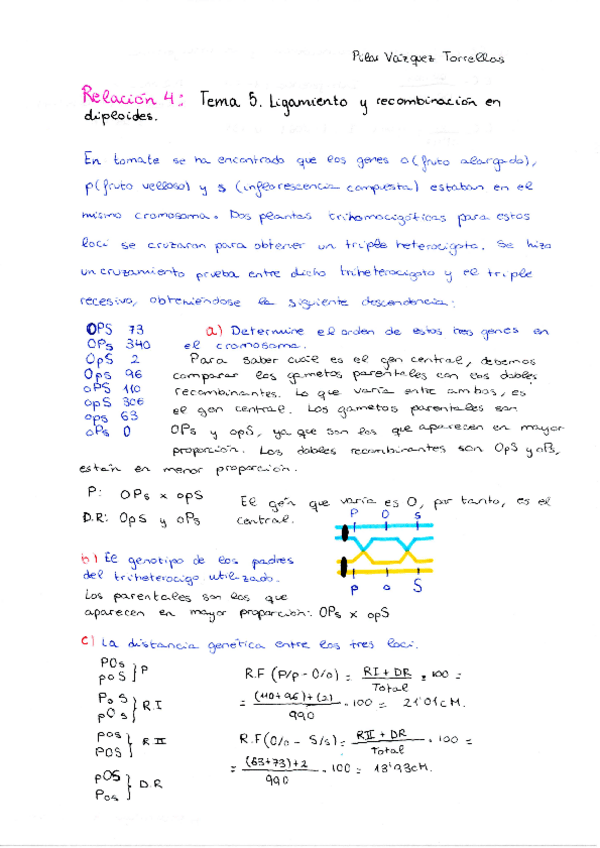 Pilar Vázquez Torrellas
Relación 4: Tema 5. Ligamiento y recombinación en
diploides.
En tomate se ha encontrado que los genes o (fruto alargado),
p (fruto velloso) y s (inflorescencia compuesta) estaban en el
mismo cromosoma. Dos plantas trihomocigóticas para estos
loci se cruzaron para obtener un triple heterocigoto. Se hizo
un cruzamiento prueba entre dicho triheterocigoto y el triple
recesivo, obteniéndose la siguiente descendencia:
OPS 73
OPs 340
OpS 2
Ops 96
oPS 110
opS 306
ops 63
oPs 0
a) Determine el orden de estos tres genes en
el cromosoma.
Para saber cuál es el gen central, debemos
comparar los gametos parentales con los dobles
recombinantes. Lo que varía entre ambos, es
el gen central. Los gametos parentales son
OPs y opS, ya que son los que aparecen en mayor
proporción. Los dobles recombinantes son OpS y oPs,
están en menor proporción.
P: OPs x opS
D.R: OpS y oPs
El gen que varía es O, por tanto, es el
central.
P O s
p o S
b) El genotipo de los padres
del triheterocigo utilizado.
Los parentales son los que
aparecen en mayor proporción: OPs x opS
c) La distancia genética entre los tres loci.
POs
poS } P
PoS
pOs } R.I
pos
POS } R II
pOS
Pos } D.R
R.F (P/p - O/o) = RI + DR / Total · 100 =
= (110+96)+(2) / 990 · 100 = 21'01cM.
R.F (O/o - S/s) = RII + DR / Total · 100 =
= (63+73)+2 / 990 · 100 = 13'93cM.